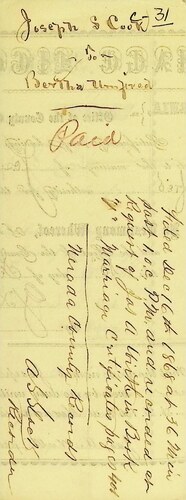 31
Joseph S Cook
to
Bertha Unfried
Paid
Filed Dec 16th 1868 at 36 Min
past 1 o.c. P.M. and recorded at
Request of Jas A in Book
Marriage Certificates page
Nevada County Records
Recorder